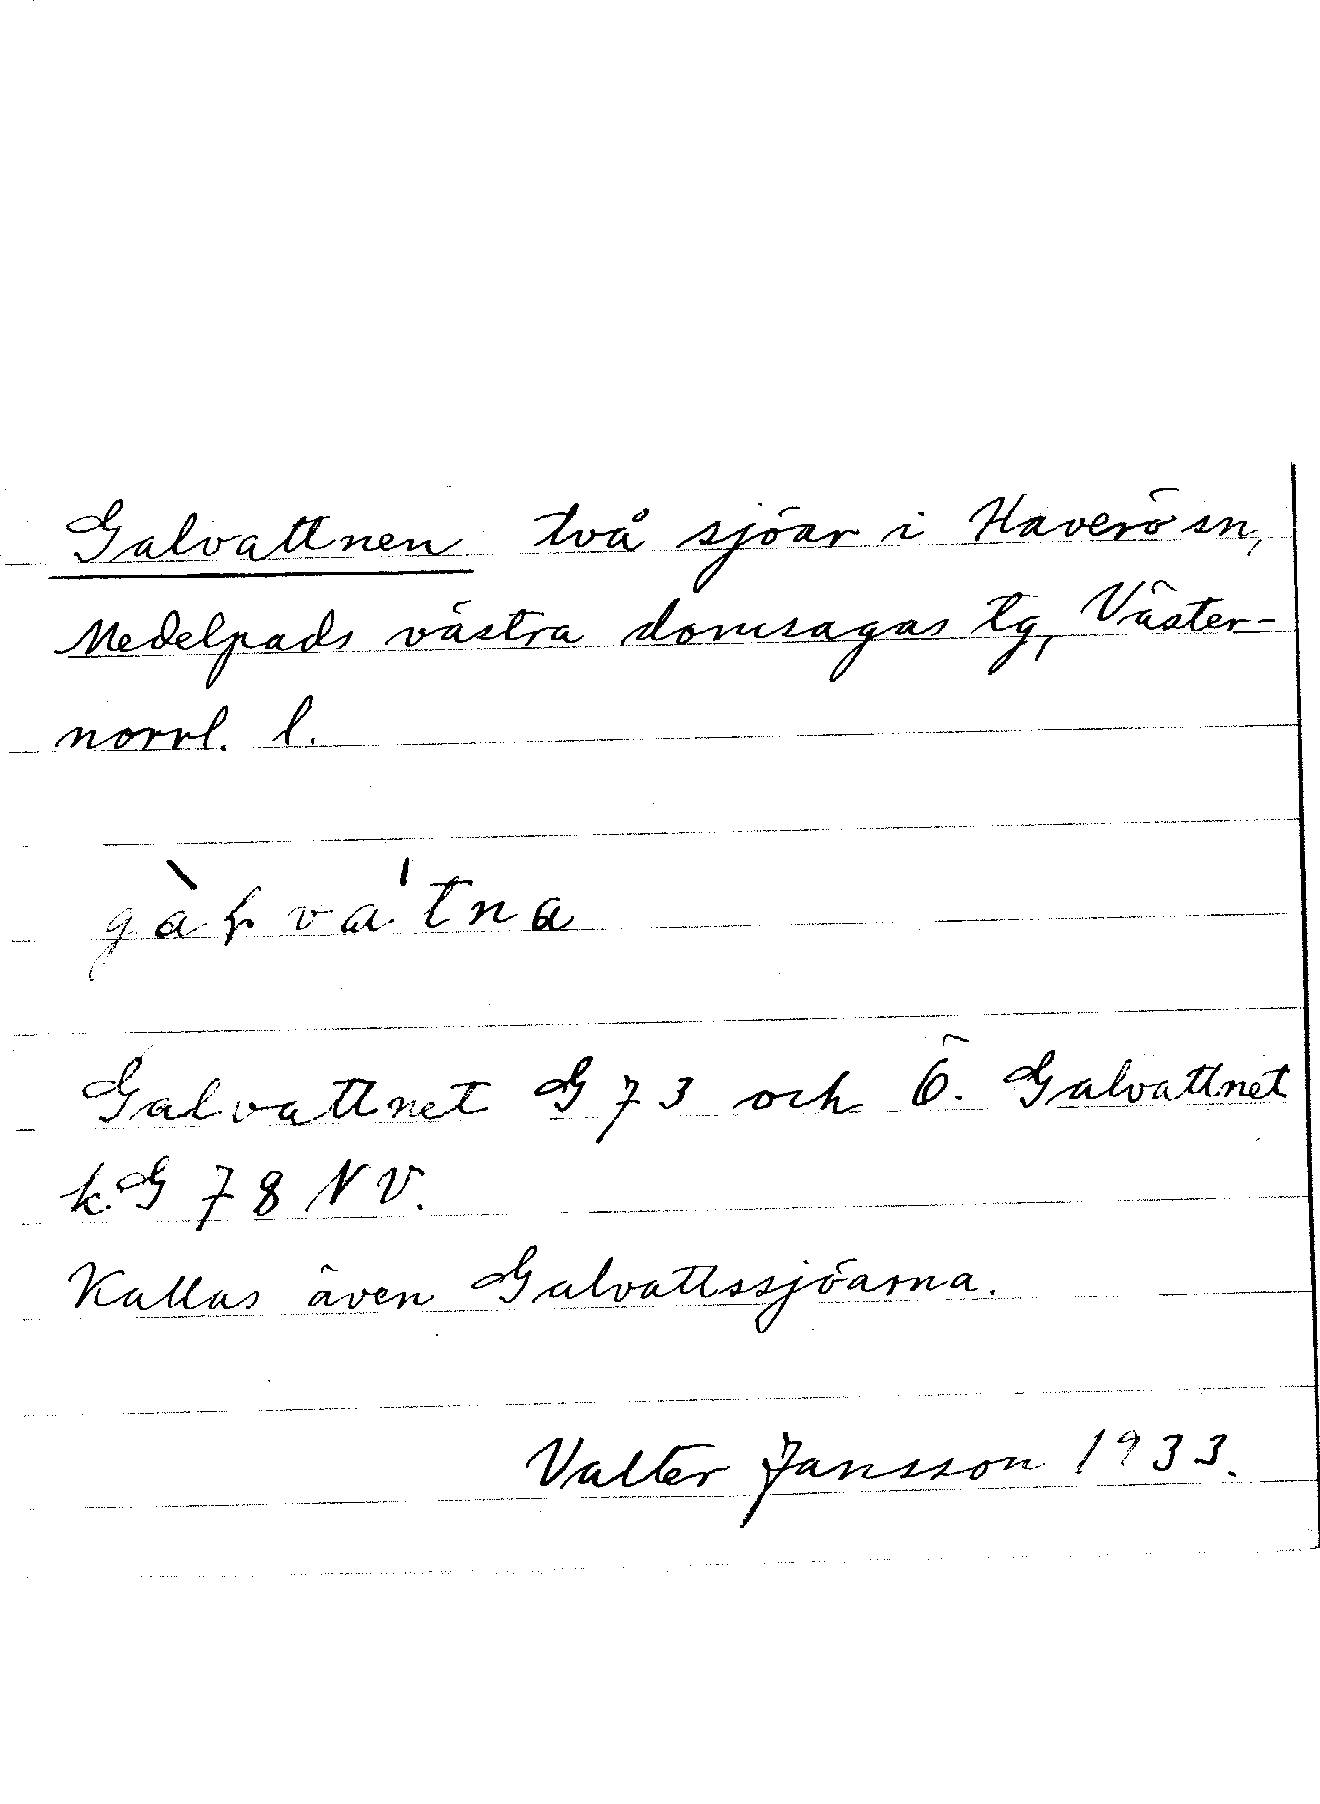 Galvattnen två sjöar i Haverö sn,
Medelpads västra domsagas tg, Väster-
norrl. l.
gàɫva'tna
Galvattnet G 73 och Ö. Galvattnet
k. G 78 NV.
Kallas även Galvattssjöarna.
Valter Jansson 1933.